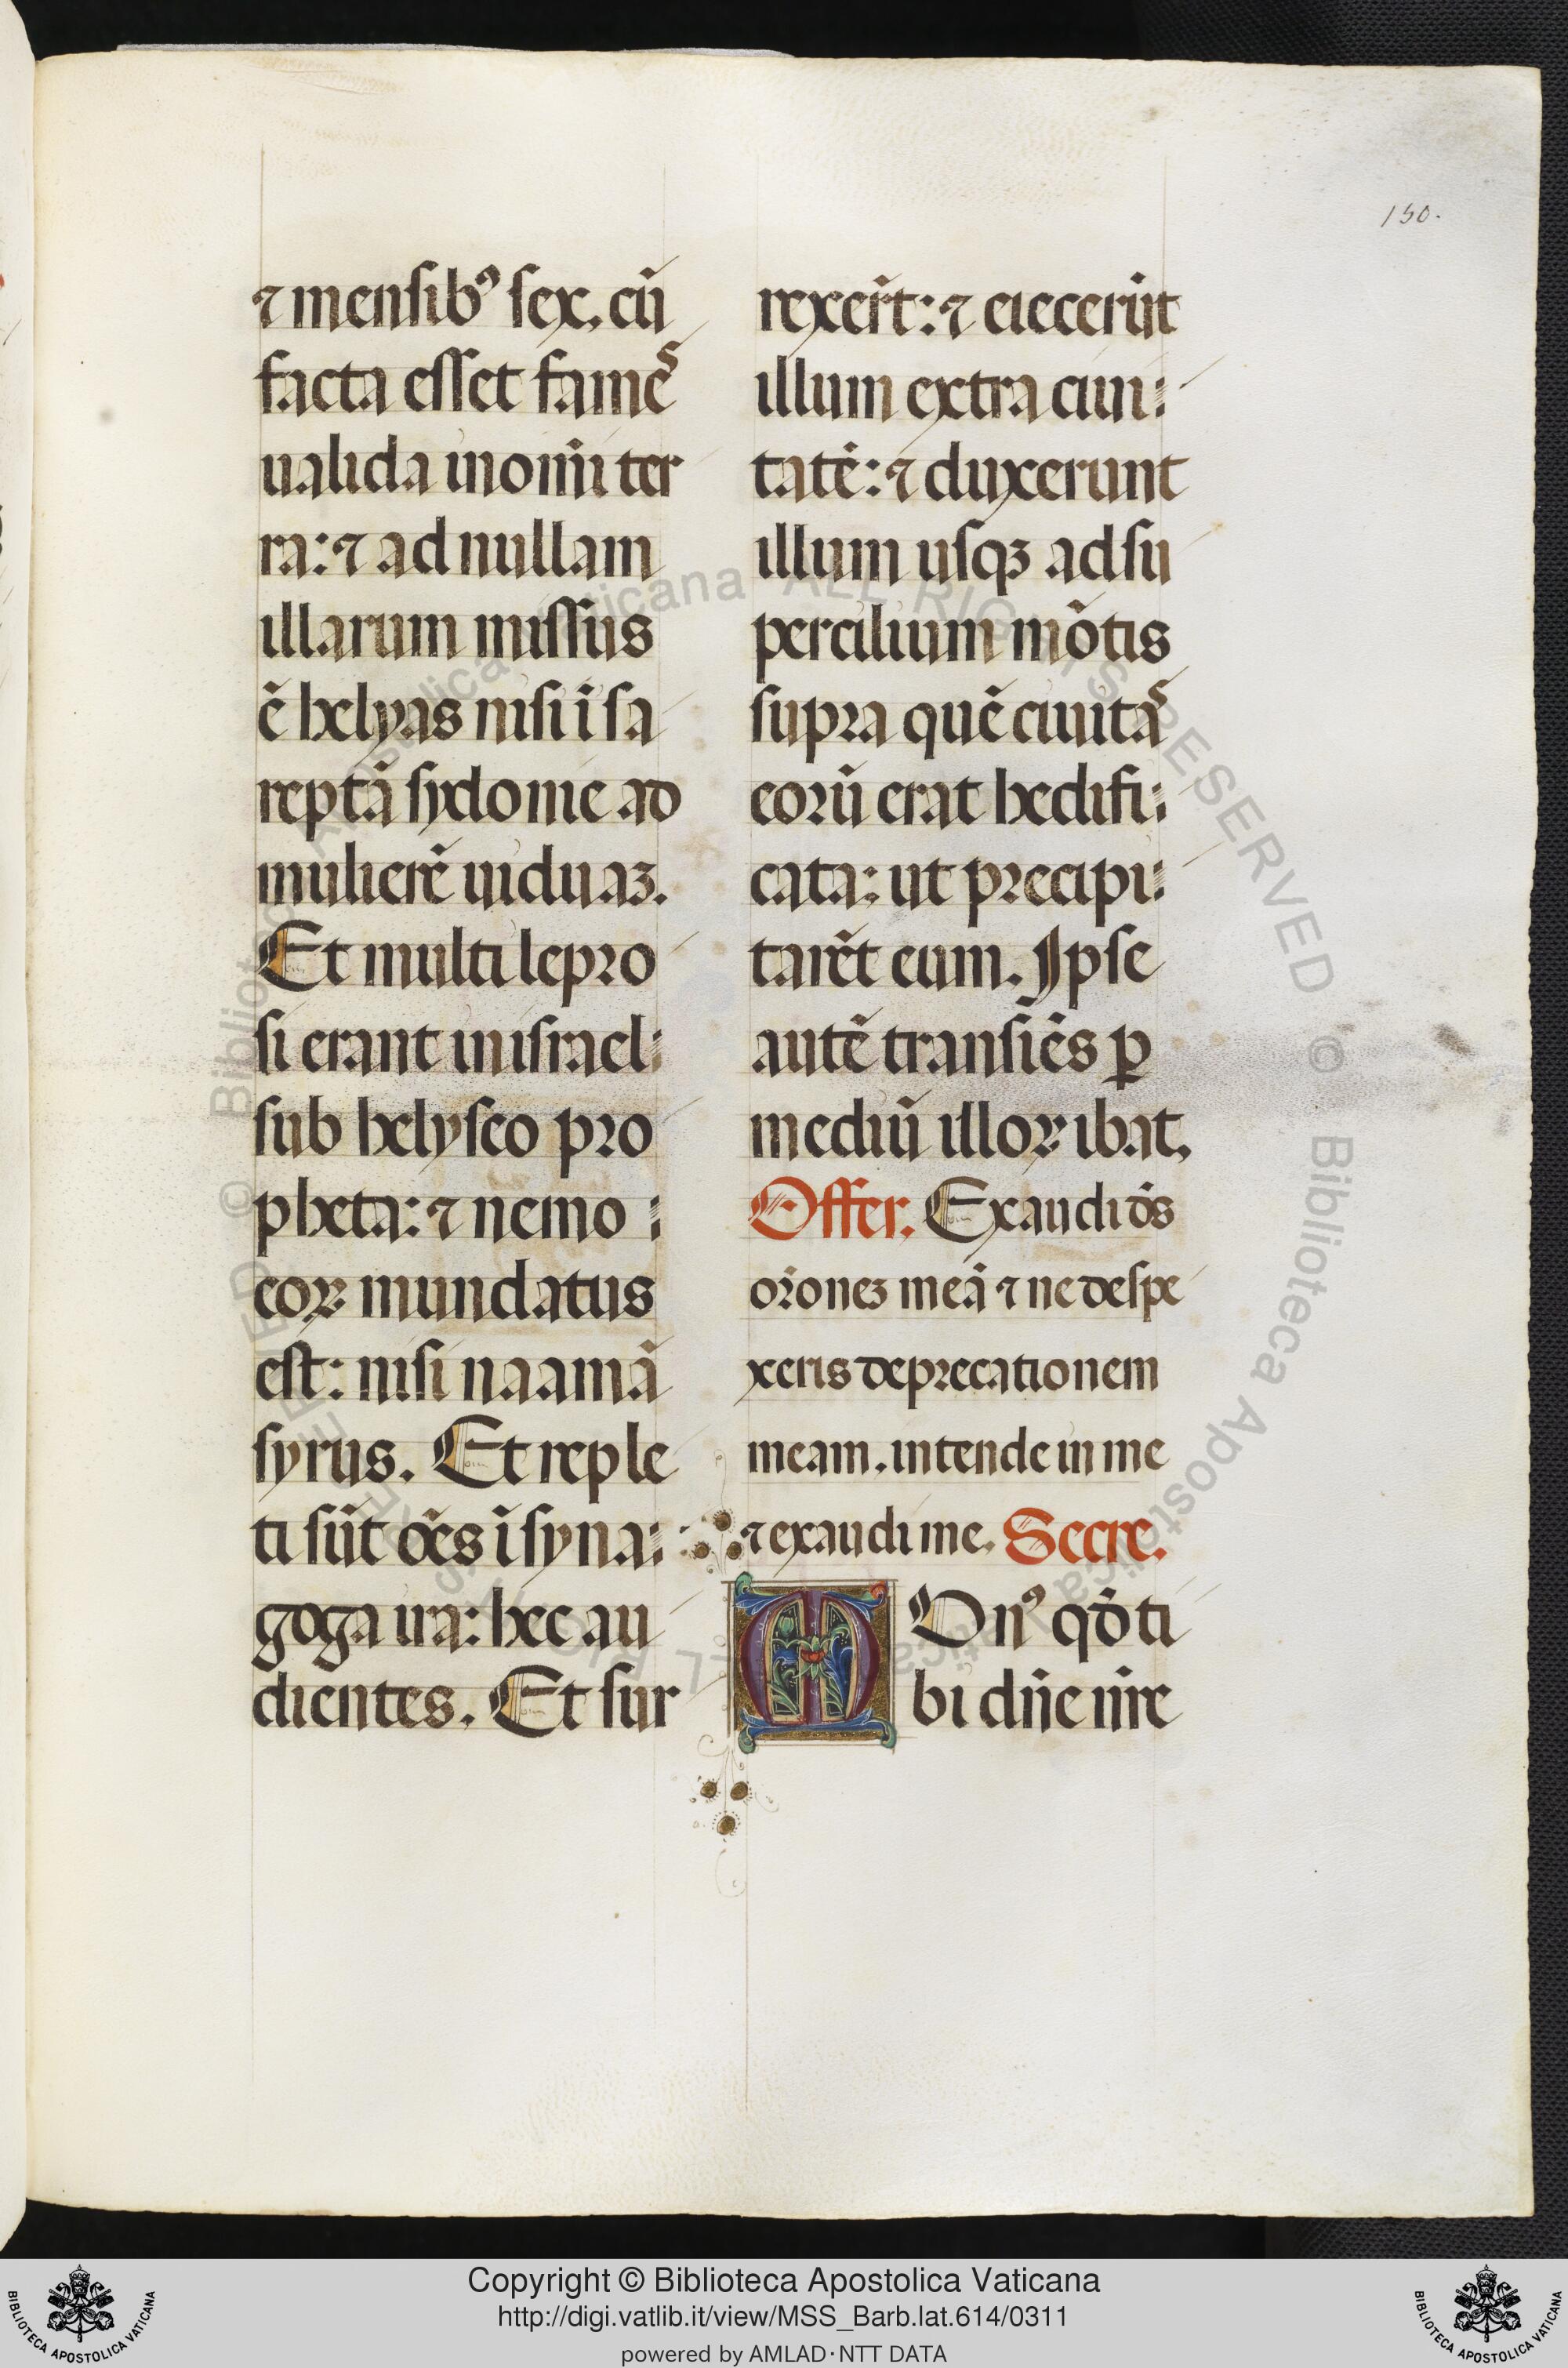 150.
⁊ mensibꝰ sex. cū
facta esset fames
ualida in om̄i ter
ra: ⁊ ad nullam
illarum missus
ē helyas nisi ī sa
reptā sydonie ad
mulierē uiduaꝫ.
Et multi lepro
si erant in israel:
sub helyseo pro
pheta: ⁊ nemo :
eoꝝ mundatus
est: nisi naamā
syrus. Et reple
ti sūt oēs ī syna:
goga ira: hec au
dientes. Et sur
rexer̄t: ⁊ eiecerūt
illum extra ciui:
tatē: ⁊ duxerunt
illum usqꝫ ad su
percilium mōtis
supra quē ciuitas
eorū erat hedifi:
cata: ut precipi:
tarēt eum. Ipse
autē transiēs ꝑ
mediū illoꝝ ibat.
Offer. Exaudi d̄s
or̄oneꝫ meā ⁊ ne despe
xeris deprecationem
meam. intende in me
⁊ exaudi me. Secre.
MUnꝰ qd̄ ti
bi dn̄e nr̄e
© Biblioteca Apostolica Vaticana ALL RIGHTS RESERVED
Copyright © Biblioteca Apostolica Vaticana
http://digi.vatlib.it/view/MSS_Barb.lat.614/0311
powered by AMLAD·NTT DATA
BIBLIOTECA APOSTOLICA VATICANA
BIBLIOTECA APOSTOLICA VATICANA